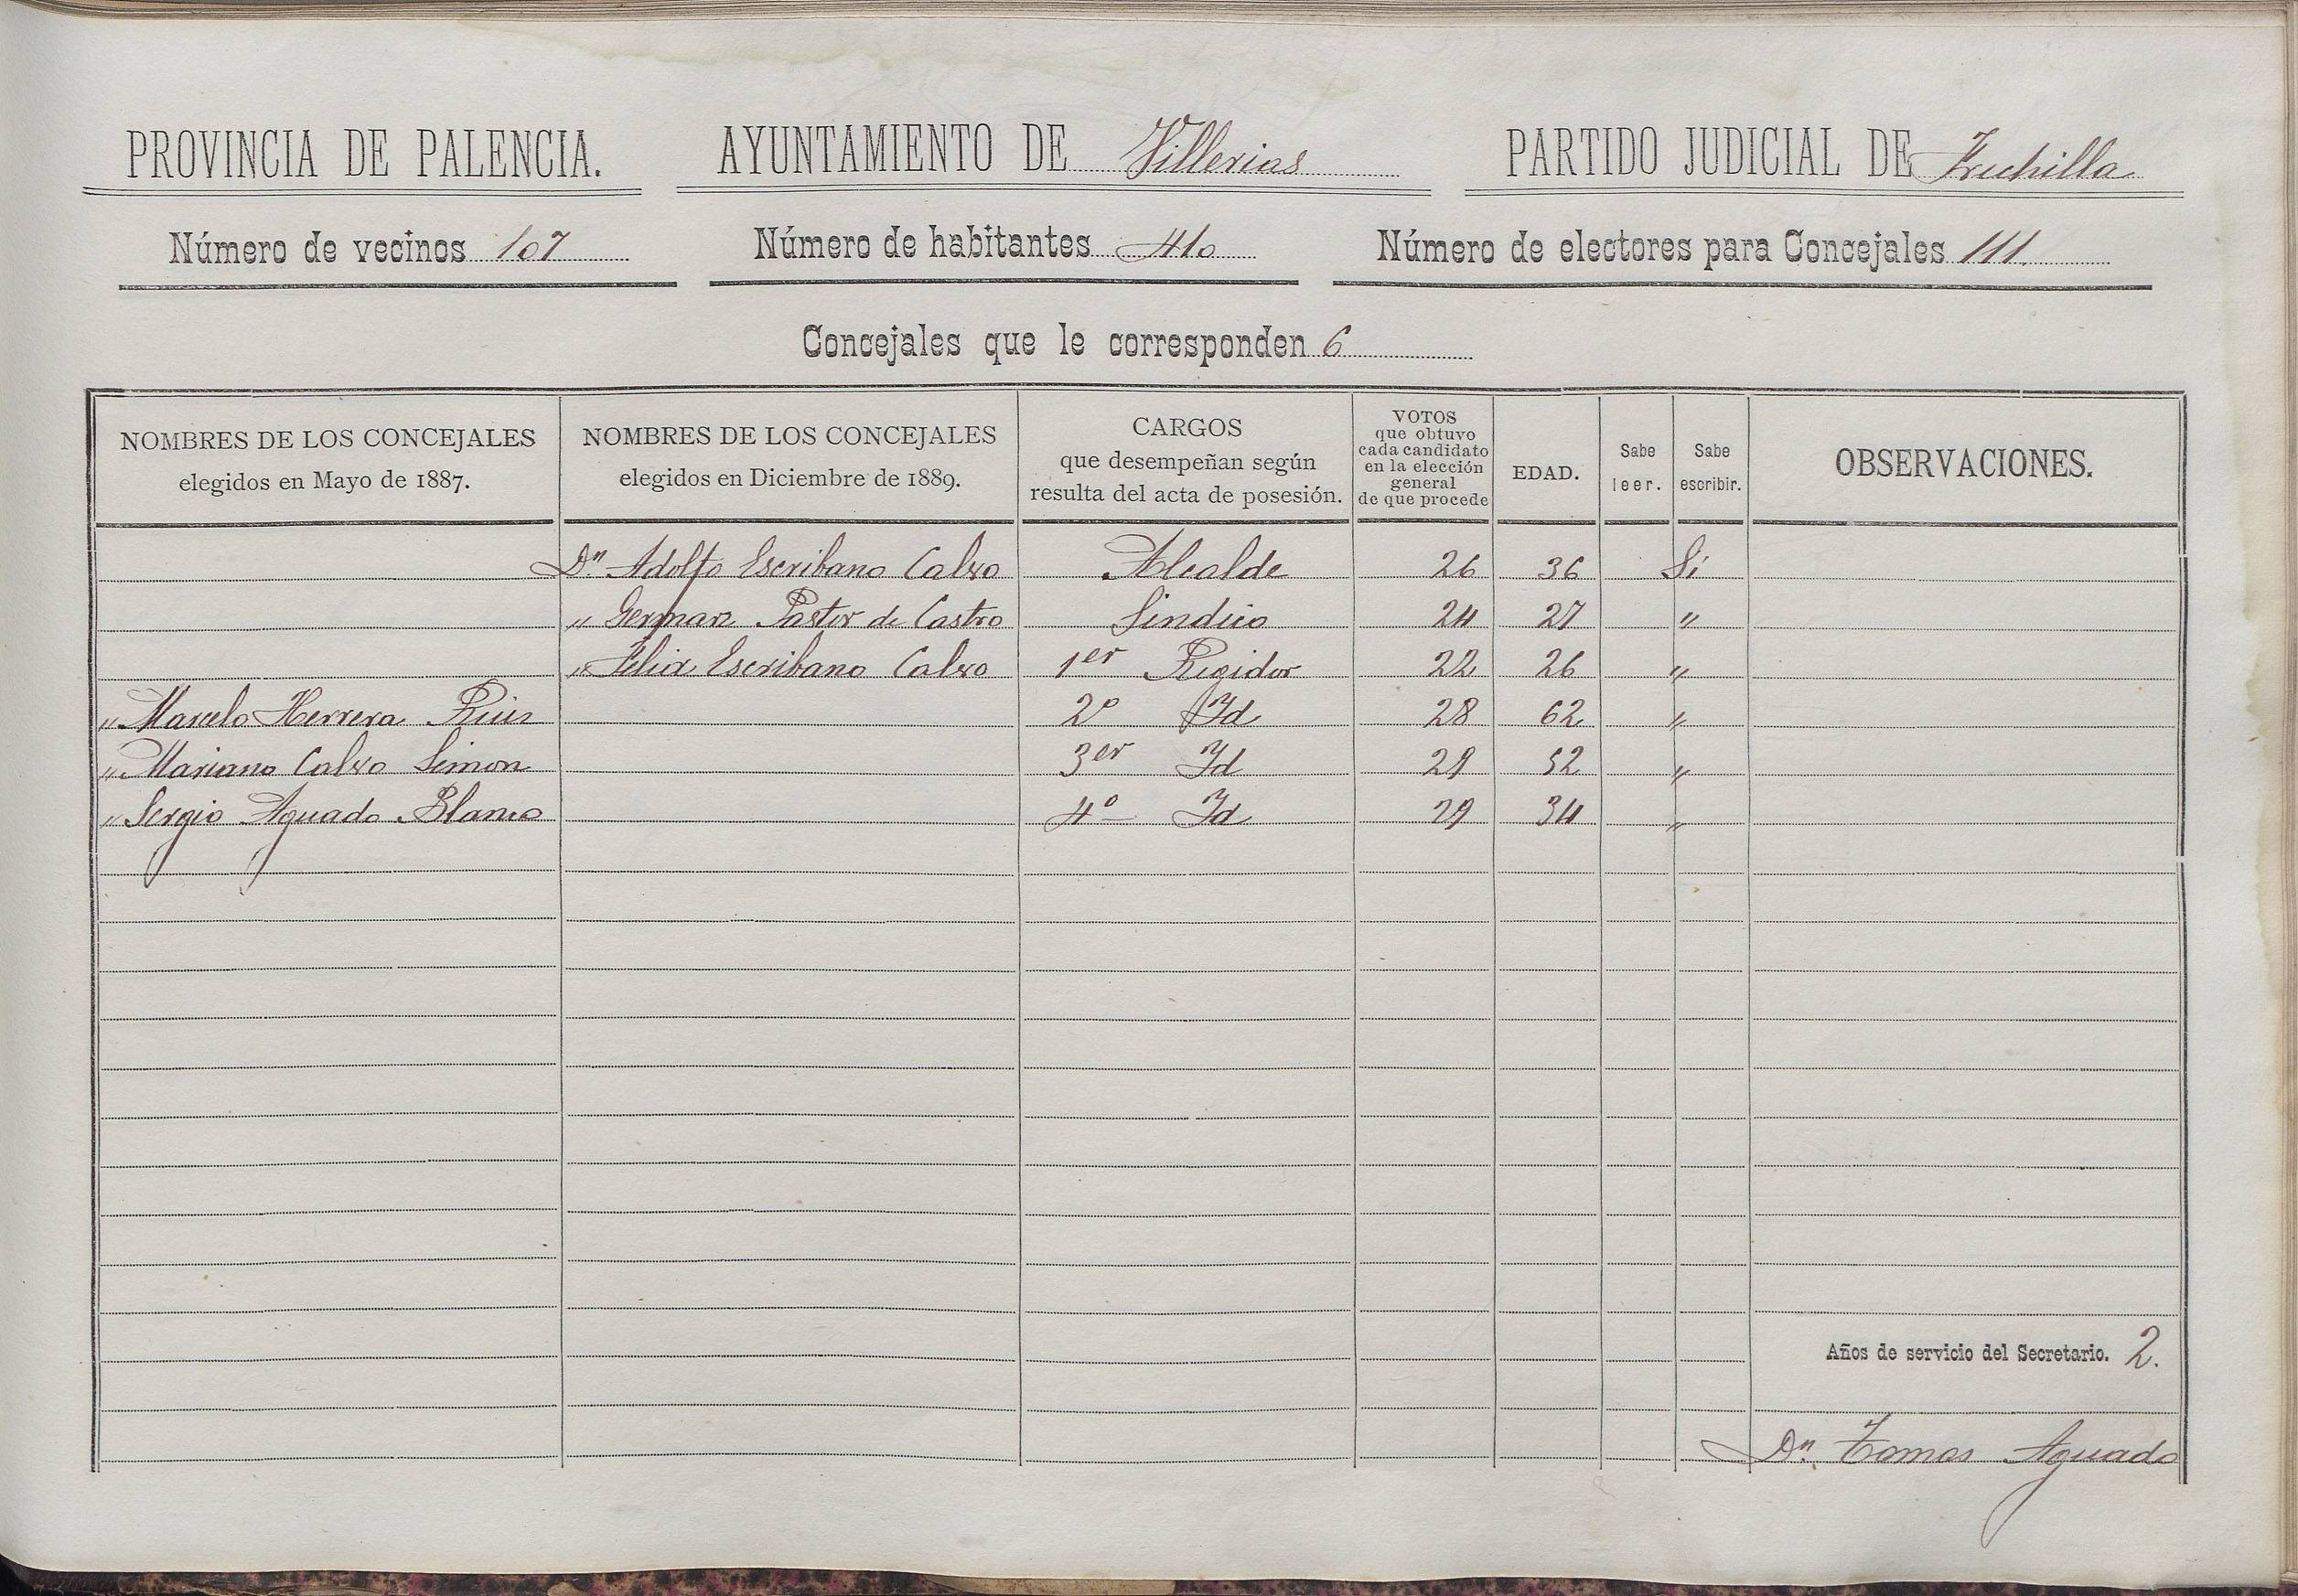 PROVINCIA DE PALENCIA. AYUNTAMIENTO DE Villerias PARTIDO JUDICIAL DE Frechilla
Número de vecinos 107 Número de habitantes 410 Número de electores para Concejales 111.
Concejales que le corresponden 6
NOMBRES DE LOS CONCEJALES
elegidos en Mayo de 1887.
NOMBRES DE LOS CONCEJALES
elegidos en Diciembre de 1889.
CARGOS
que desempeñan según
resulta del acta de posesión.
VOTOS
que obtuvo
cada candidato
en la elección
general
de que procede
EDAD.
Sabe
leer.
Sabe
escribir.
OBSERVACIONES.
Dn Adolfo Escribano Calvo Alcalde 26 36 Si
" German Pastor de Castro Sindico 24 27 "
" Felix Escribano Calvo 1er Regidor 22 26 "
" Marcelo Herrera 2º Id 28 62 "
" Mariano Calvo Simon 3er Id 29 52 "
" Sergio Aguado Blanco 4º Id 29 34 "
Años de servicio del Secretario. 2.
Dn. Tomas Aguado